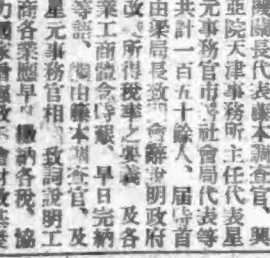 長代表藤本調查官、興
亞院天津事務所主任代表星
元事務官市署社會局代表等
共計一百五十餘人、屆時首
由梁局長致會辭說明政府
改所得稅率之要義、及各
業工商體念時艱、早日完納
等語、繼由藤本調查官、及
星元事務官相致詞說明工
商各業應早繳納各稅、協
力國家